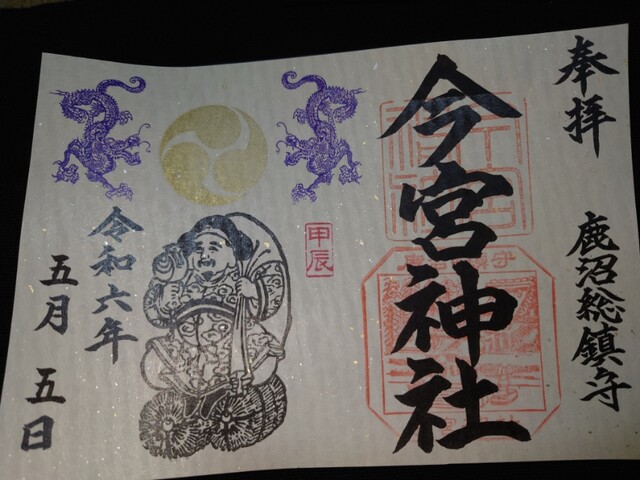 奉拝
鹿沼総鎮守
今宮神社
甲辰
令和六年
五月五日